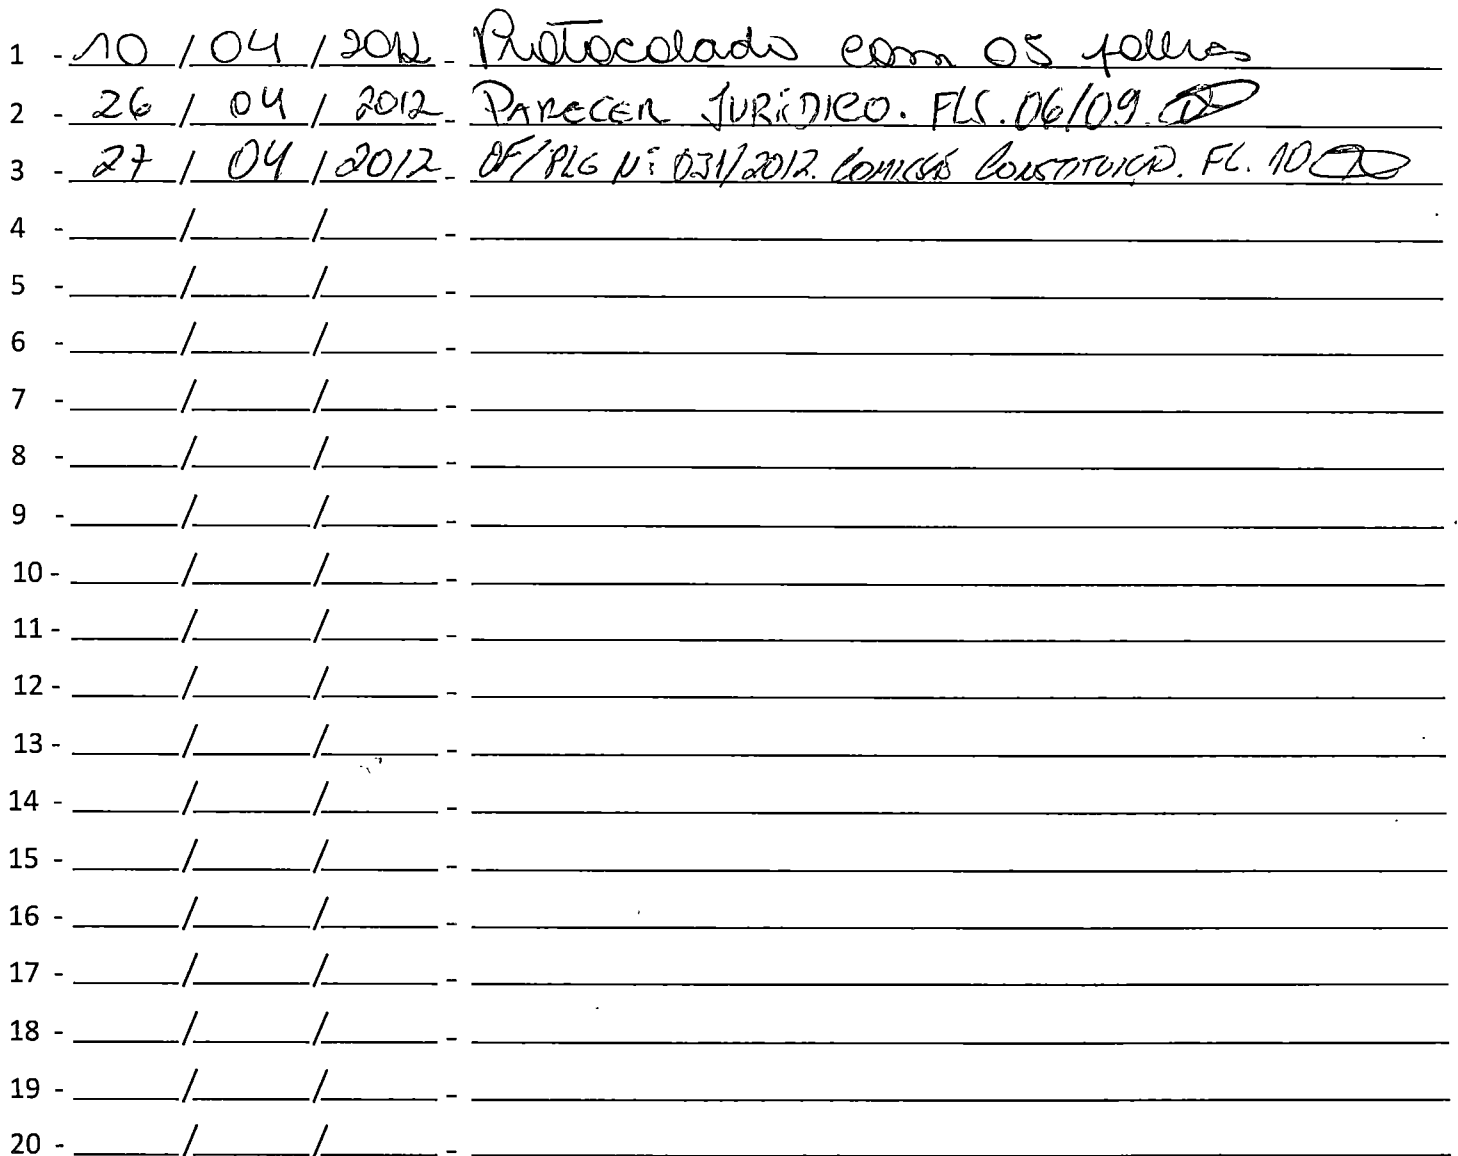 1 - 10 / 04 / 2012 - Protocolado com 05 folhas
2 - 26 / 04 / 2012 - PARECER JURÍDICO. FLS. 06/09
3 - 27 / 04 / 2012 - OF/PLG Nº 031/2012. COMISSÃO CONSTITUIÇÃO. FL. 10
4 - ____/____/____ -
5 - ____/____/____ -
6 - ____/____/____ -
7 - ____/____/____ -
8 - ____/____/____ -
9 - ____/____/____ -
10 - ____/____/____ -
11 - ____/____/____ -
12 - ____/____/____ -
13 - ____/____/____ -
14 - ____/____/____ -
15 - ____/____/____ -
16 - ____/____/____ -
17 - ____/____/____ -
18 - ____/____/____ -
19 - ____/____/____ -
20 - ____/____/____ -